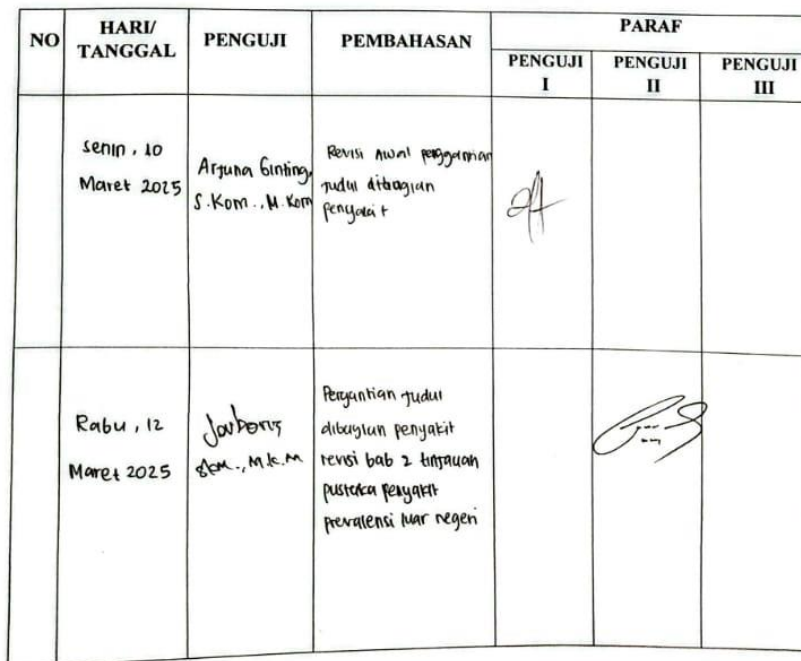 NO
HARI/
TANGGAL
PENGUJI
PEMBAHASAN
PARAF
PENGUJI
I
PENGUJI
II
PENGUJI
III
Senin, 10
Maret 2025
Arjuna Ginting,
S.Kom., M.Kom
Revisi Awal penggantian
judul dibagian
penyakit
Rabu, 12
Maret 2025
SKM., M.K.M
Pergantian judul
dibagian penyakit
revisi bab 2 tinjauan
pustaka penyakit
prevalensi luar negeri